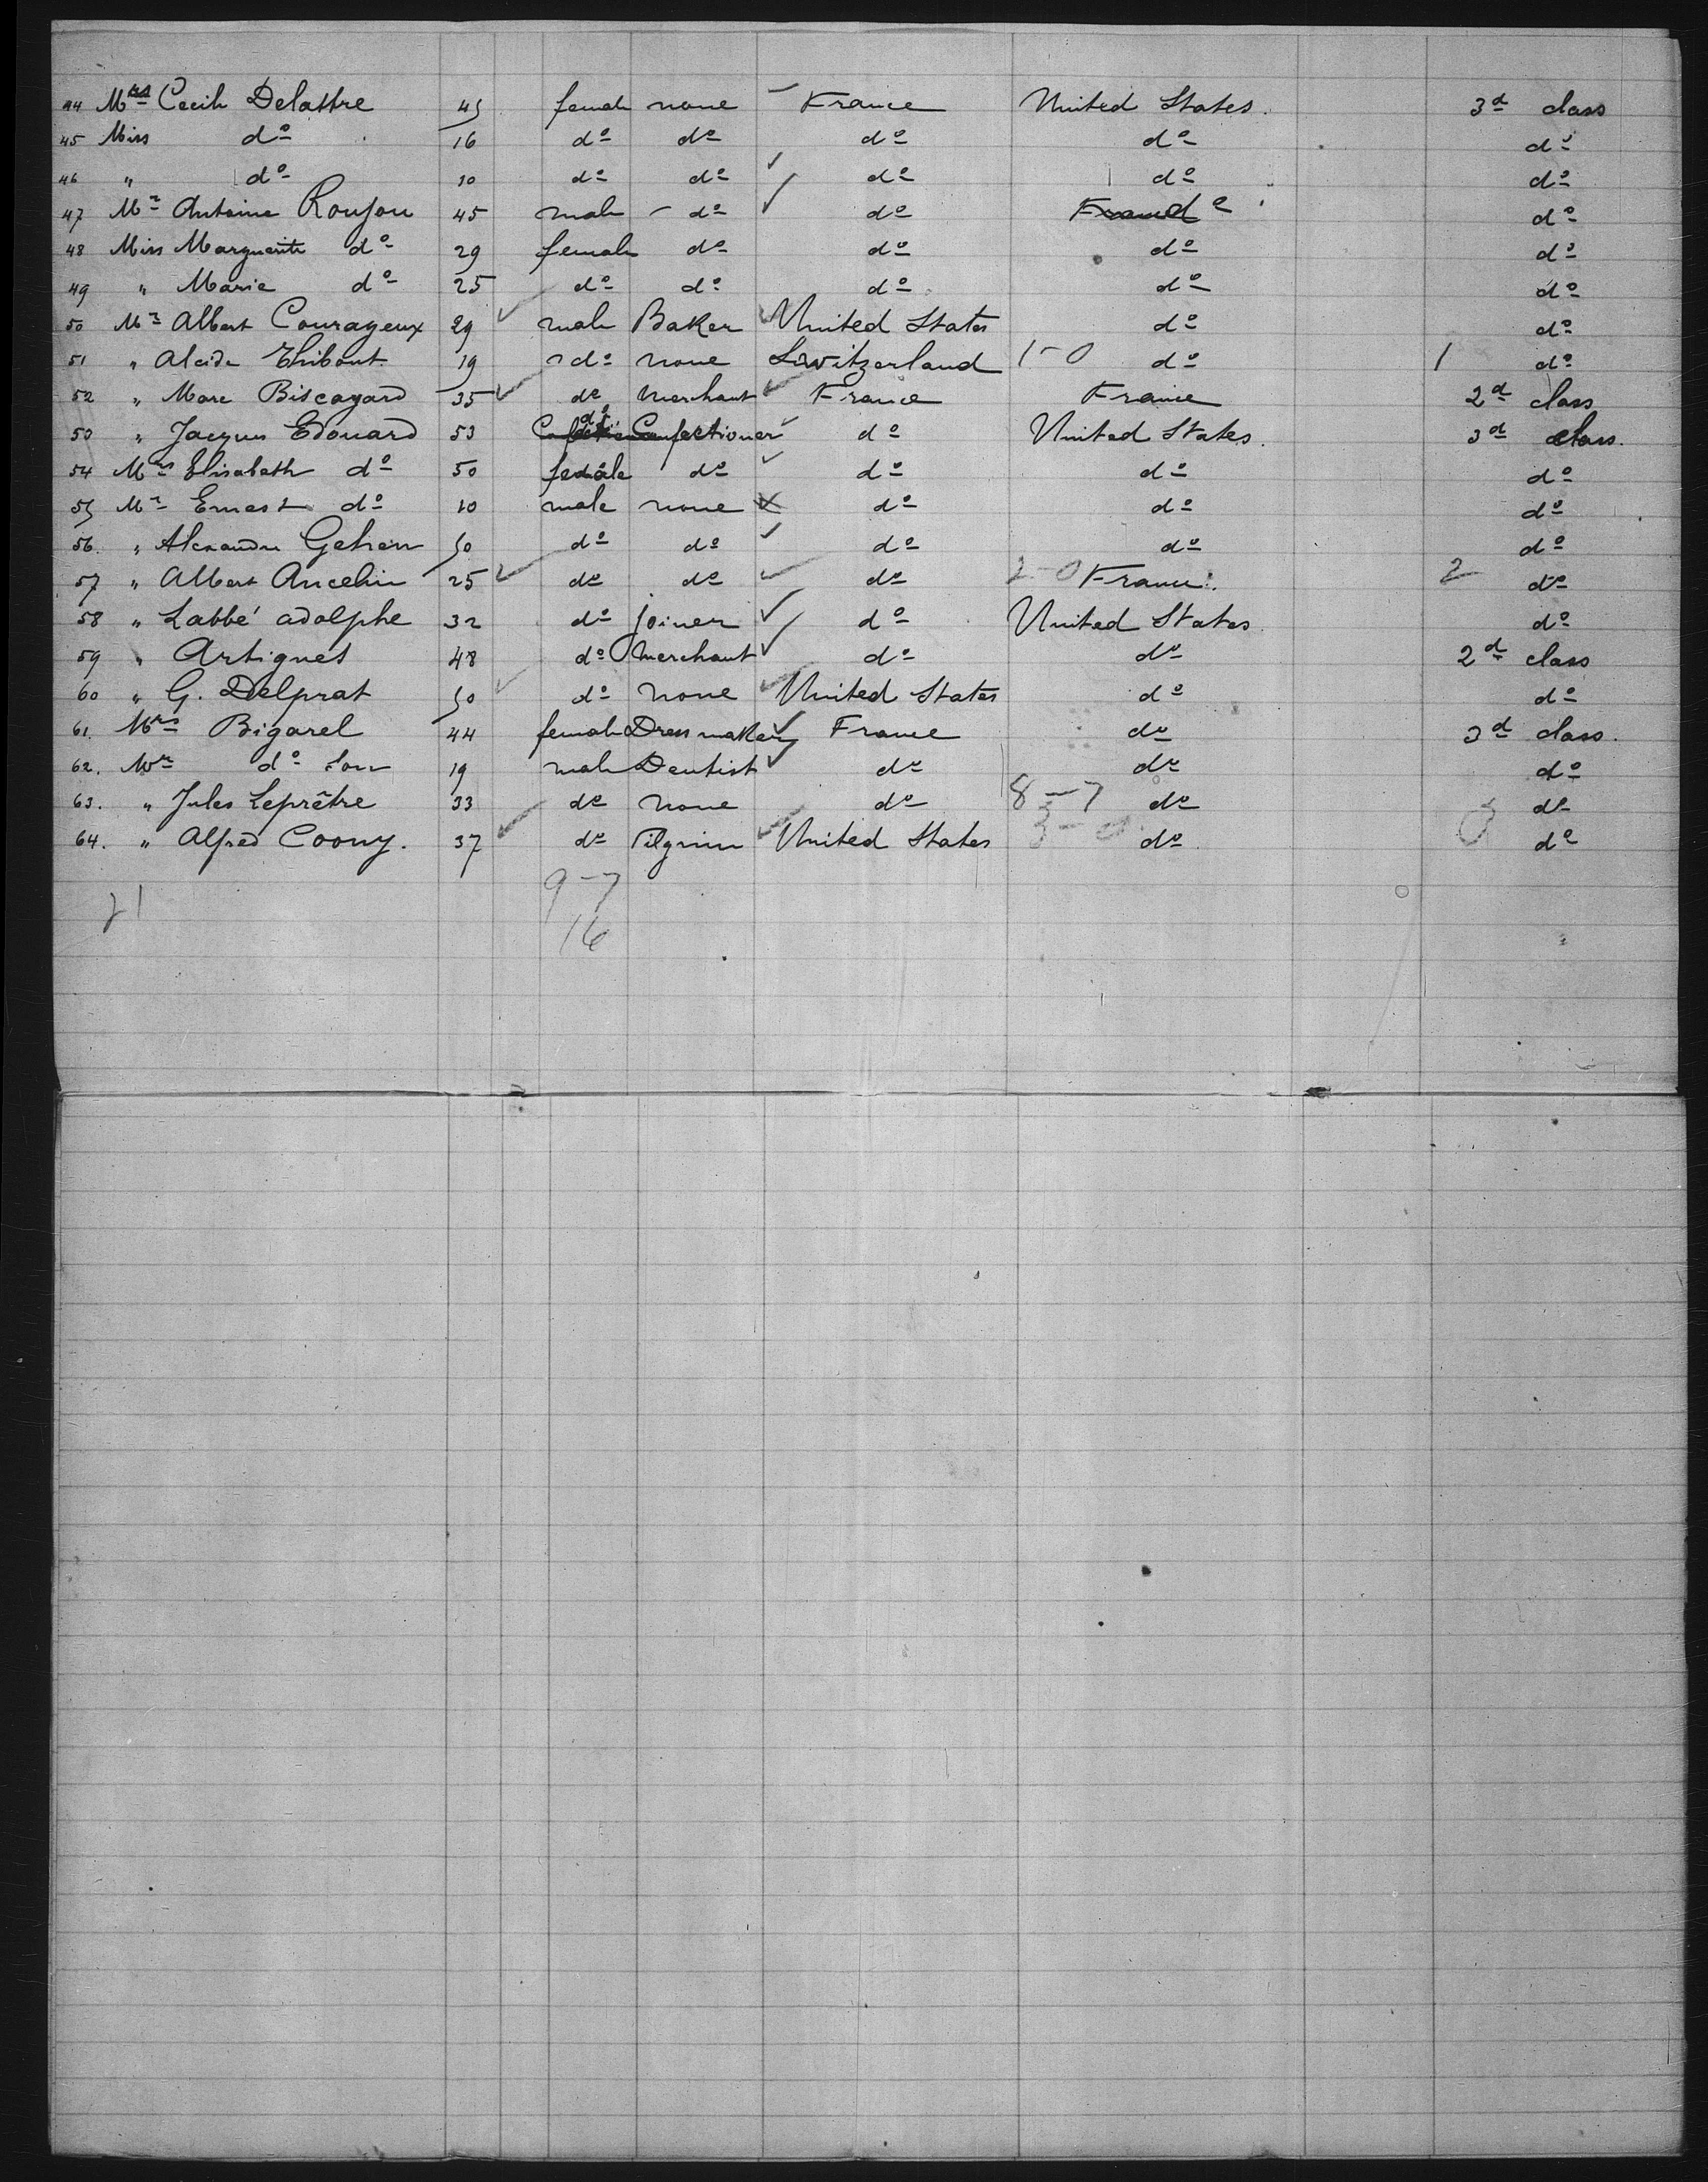 44 Mrs Cecile Delattre 45 female none France United States. 3d class
45 Miss do 16 do do do do do
46 " do 10 do do do do do
47 Mr Antoine Roujou 45 male do do France do do
48 Miss Marguerite do 29 female do do do do
49 " Marie do 25 do do do do do
50 Mr Albert Courageux 29 male Baker United States do do
51 " Alcide Thibout 19 do none Switzerland 1-0 do 1 do
52 " Marc Biscayard 35 do merchant France France 2d class
53 " Jacques Edouard 53 do Confectioner do United States. 3d class.
54 Mrs Elisabeth do 50 female do do do do
55 Mr Ernest do 10 male none do do do
56. " Alexandre Gehien 50 do do do do do
57 " Albert Ancelin 25 do do do 2-0 France. 2 do
58 " Labbé adolphe 32 do joiner do United States do
59 " Artignes 48 do merchant do do 2d class
60 " G. Delprat 50 do none United States do do
61. Mrs Bigarel 44 female Dress maker France do 3d class.
62. Mr do Son 19 male Dentist do do do
63. " Jules Leprêtre 33 do none do 8-7 do do
64. " Alfred Coony. 37 do Pilgrim United States 3-0 do 0 do
21 9-7
16